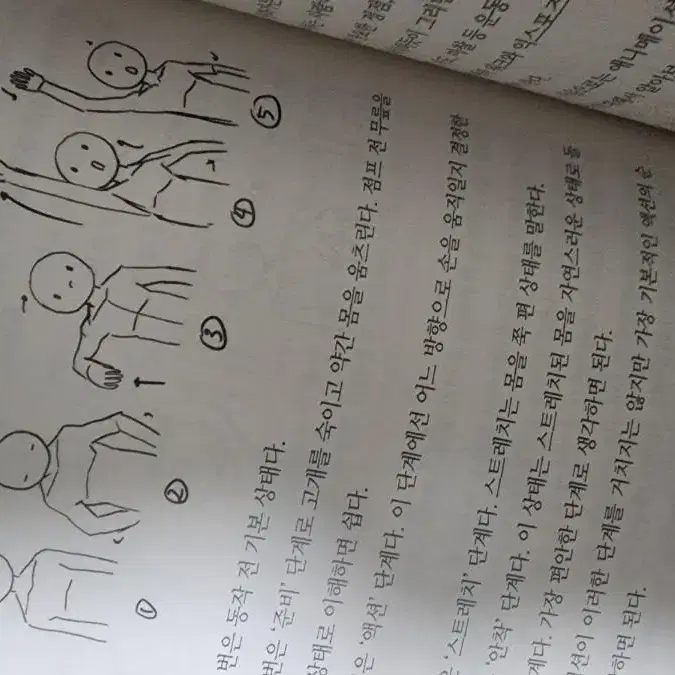 ① ② ③ ④ ⑤
번은 동작 전 기본 상태다.
번은 '준비' 단계로 고개를 숙이고 약간 몸을 움츠린다. 점프 전 무릎을
상태로 이해하면 쉽다.
은 '액션' 단계다. 이 단계에서 어느 방향으로 손을 움직일지 결정한
은 '스트레치' 단계다. 스트레치는 몸을 쭉 편 상태를 말한다.
'안착' 단계다. 이 상태는 스트레치된 몸을 자연스러운 상태로 돌
계다. 가장 편안한 단계로 생각하면 된다.
션이 이러한 단계를 거치지는 않지만 가장 기본적인 액션의 순
하면 된다.
등 운동
애니메이션